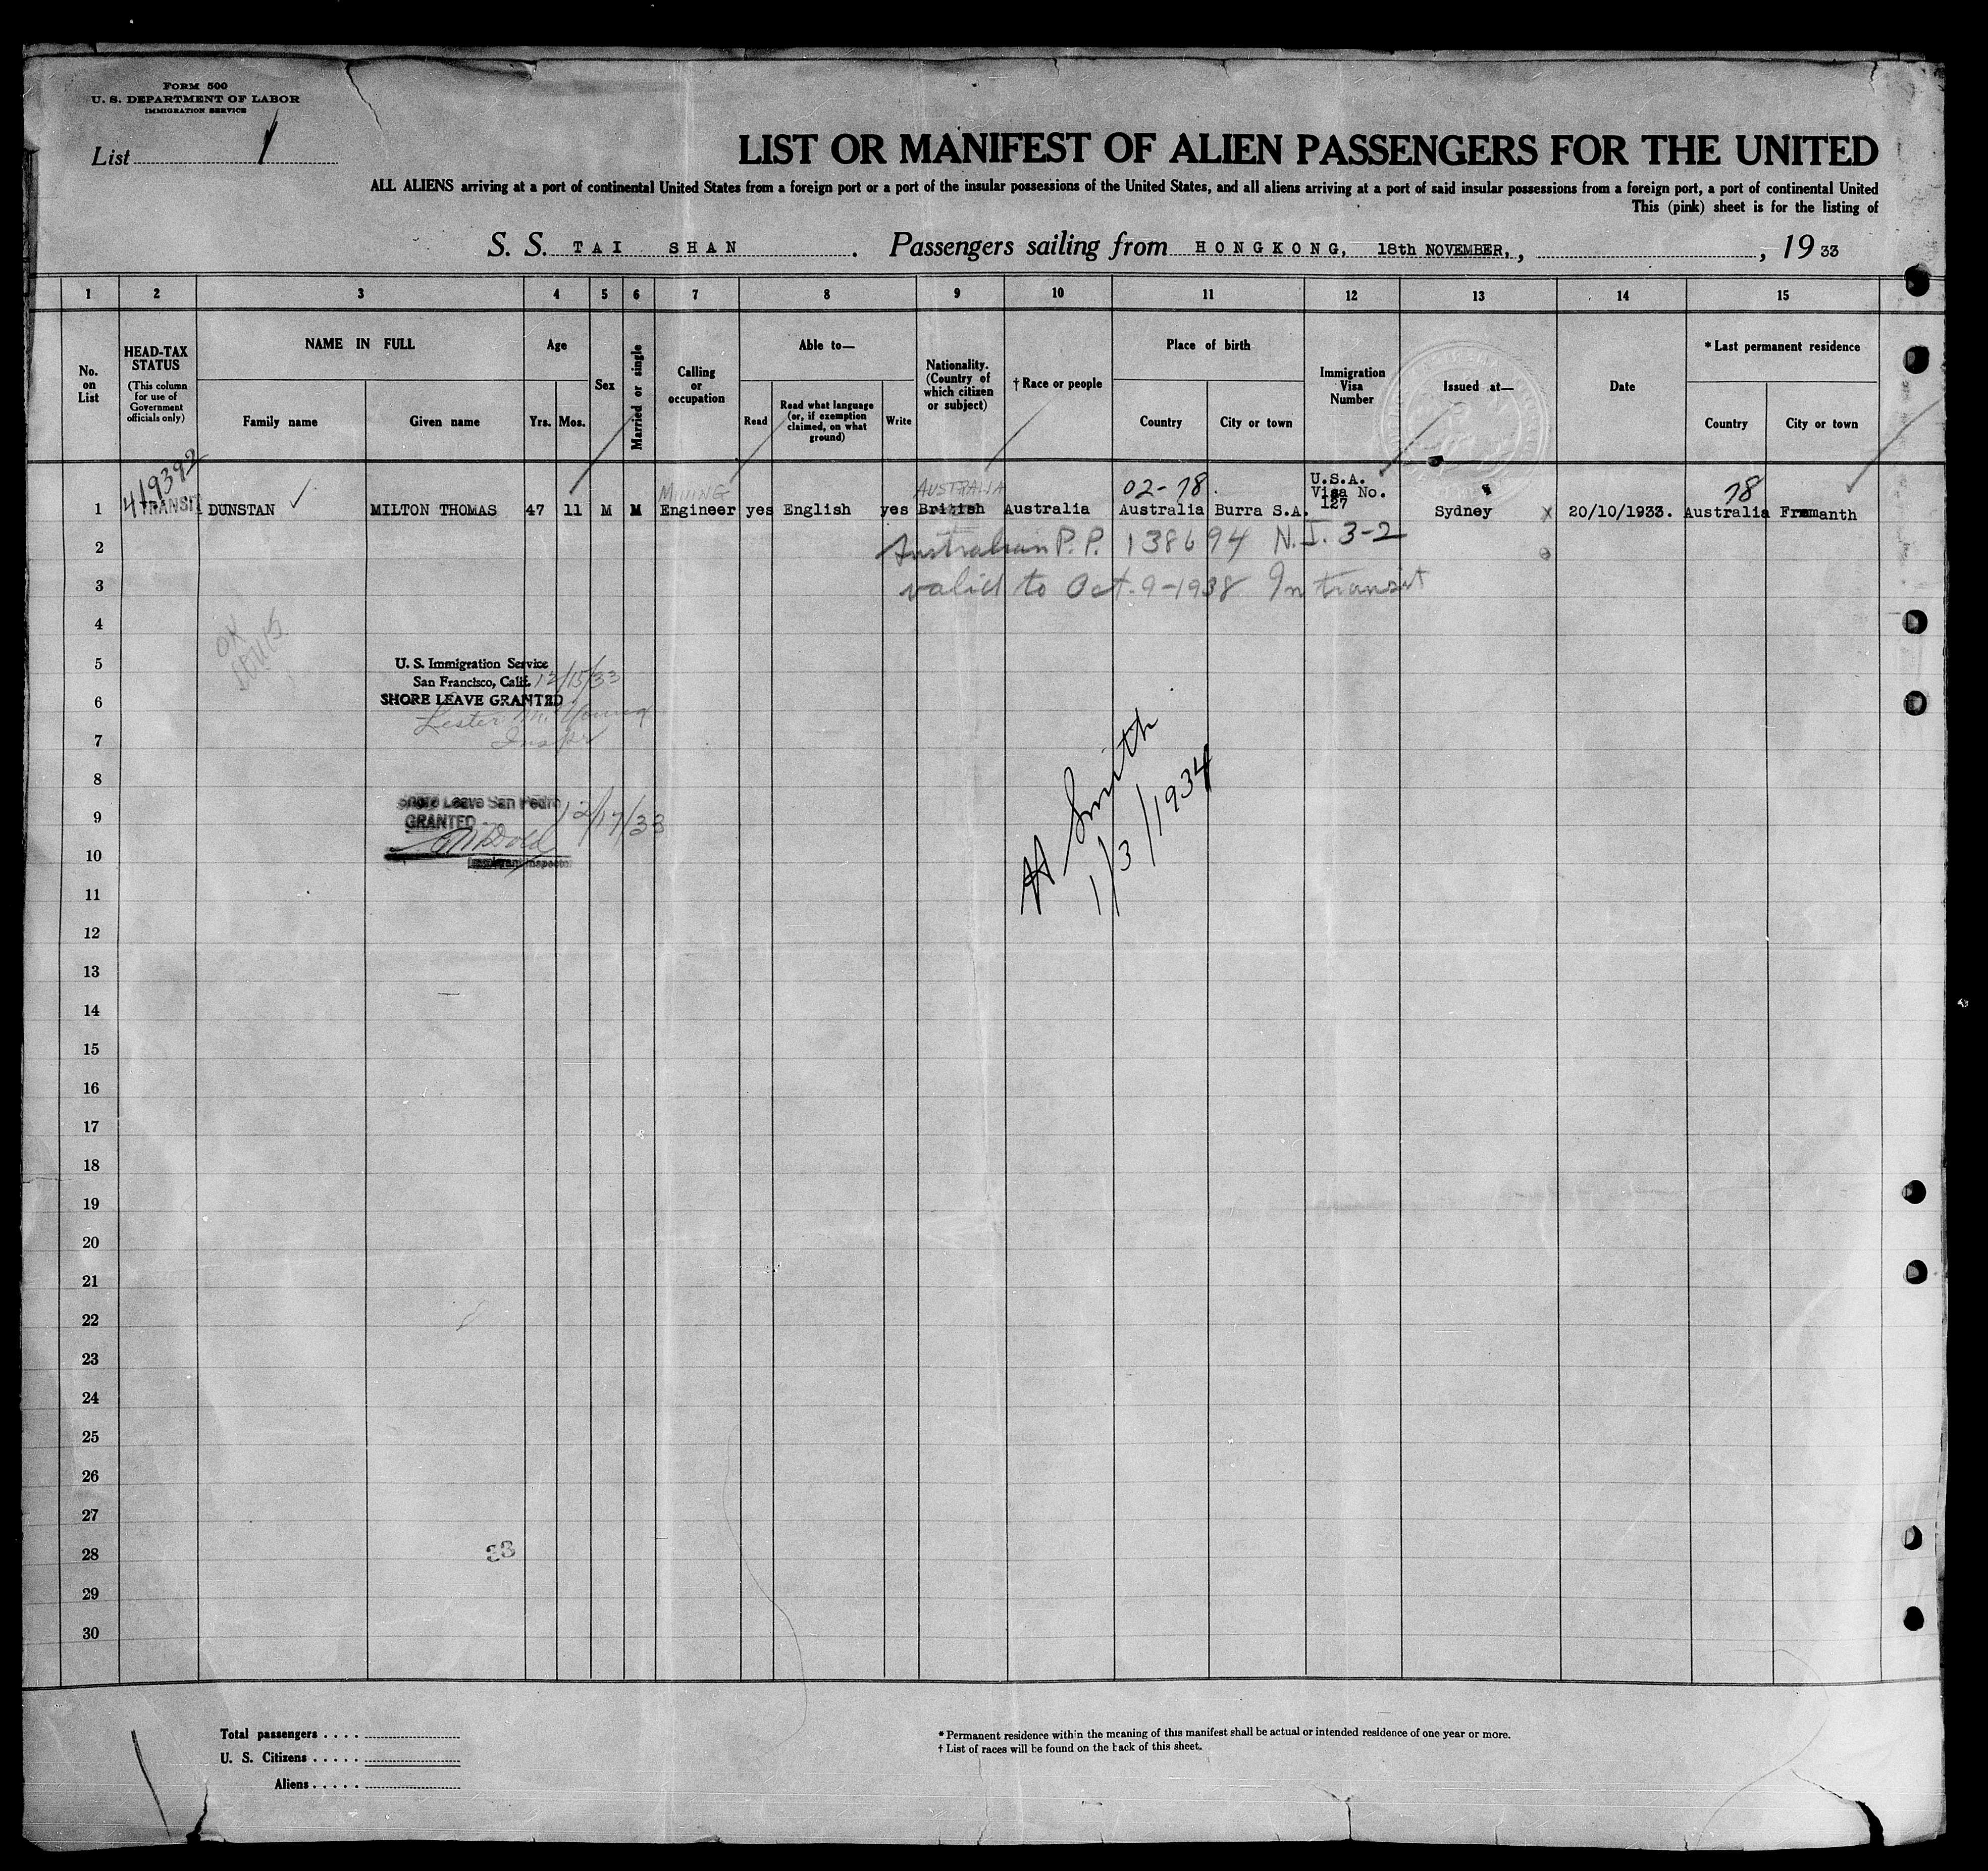 FORM 500
U. S. DEPARTMENT OF LABOR
IMMIGRATION SERVICE
List 1
LIST OR MANIFEST OF ALIEN PASSENGERS FOR THE UNITED
ALL ALIENS arriving at a port of continental United States from a foreign port or a port of the insular possessions of the United States, and all aliens arriving at a port of said insular possessions from a foreign port, a port of continental United
This (pink) sheet is for the listing of
S. S. TAI SHAN. Passengers sailing from HONGKONG, 18th NOVEMBER, , , 1933
1 2 3 4 5 6 7 8 9 10 11 12 13 14 15
No. on List
HEAD-TAX STATUS
(This column for use of Government officials only)
NAME IN FULL
Family name
Given name
Age
Yrs. Mos.
Sex
Married or single
Calling or occupation
Able to—
Read
Read what language (or, if exemption claimed, on what ground)
Write
Nationality. (Country of which citizen or subject)
† Race or people
Place of birth
Country
City or town
Immigration Visa Number
Issued at—
Date
* Last permanent residence
Country
City or town
419392
TRANSIT
MINING
AUSTRALIA
02-78.
U.S.A.
Visa No.
127
78
1 DUNSTAN ✓ MILTON THOMAS 47 11 M M Engineer yes English yes British Australia Australia Burra S.A. Sydney X 20/10/1933. Australia
2 Australian P.P. 138694 N.I. 3-2
3 valid to Oct. 9-1938 In transit
4
5 U. S. Immigration Service
San Francisco, Calif. 12/15/33
6 SHORE LEAVE GRANTED
Lester M. Young
7
8
Shore Leave San Pedro 12/17/33
9 GRANTED
10 Immigrant Inspector
H Smith
1/3/1934
11
12
13
14
15
16
17
18
19
20
21
22
23
24
25
26
27
28 33
29
30
Total passengers ....
U. S. Citizens .....
Aliens .....
* Permanent residence within the meaning of this manifest shall be actual or intended residence of one year or more.
† List of races will be found on the back of this sheet.